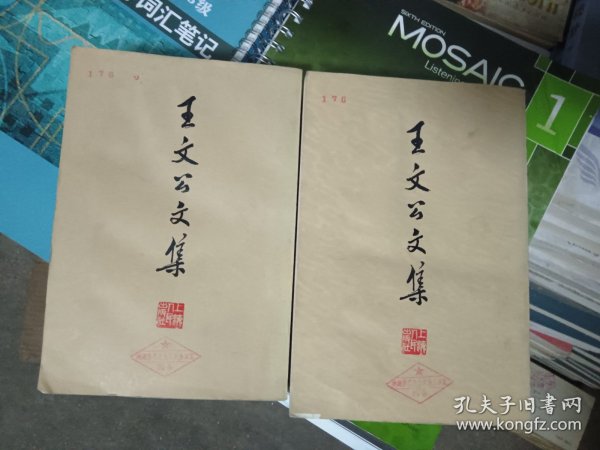 级
词汇笔记
SIXTH EDITION
MOSAIC
Listenin
1
176 9
王文公文集
上海人民出版社
176
王文公文集
上海人民出版社
孔夫子旧书网
www.kongfz.com